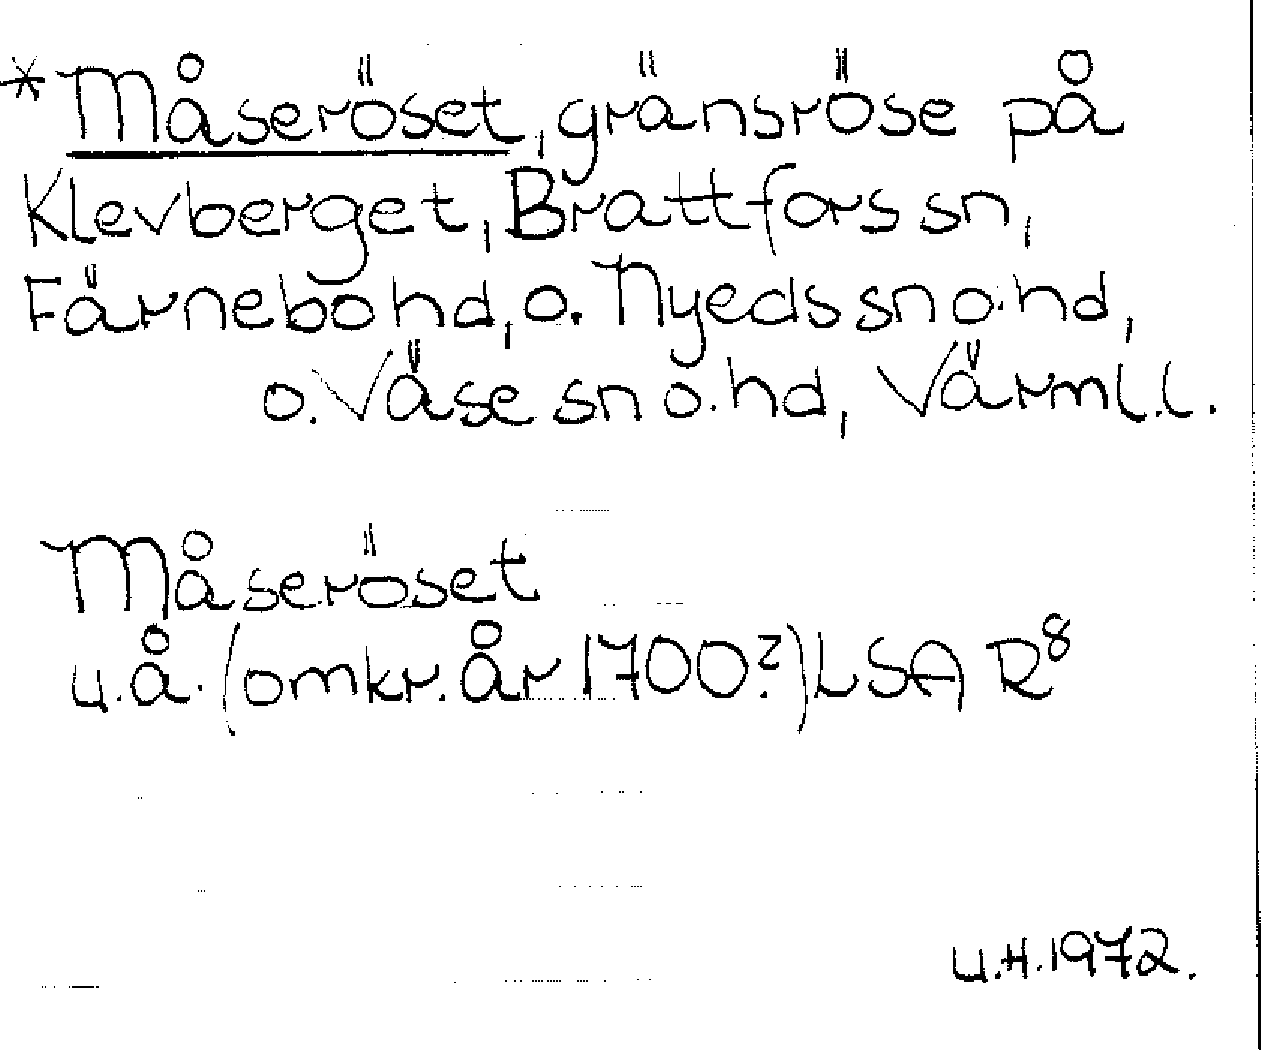 *Måseröset, gränsröse på
Klevberget, Brattfors sn,
Färnebo hd, o. Nyeds sn o. hd,
o. Väse sn o. hd, Värml. l.
Måseröset
u.å. (omkr. år 1700?) LSA R⁸
U.H. 1972.